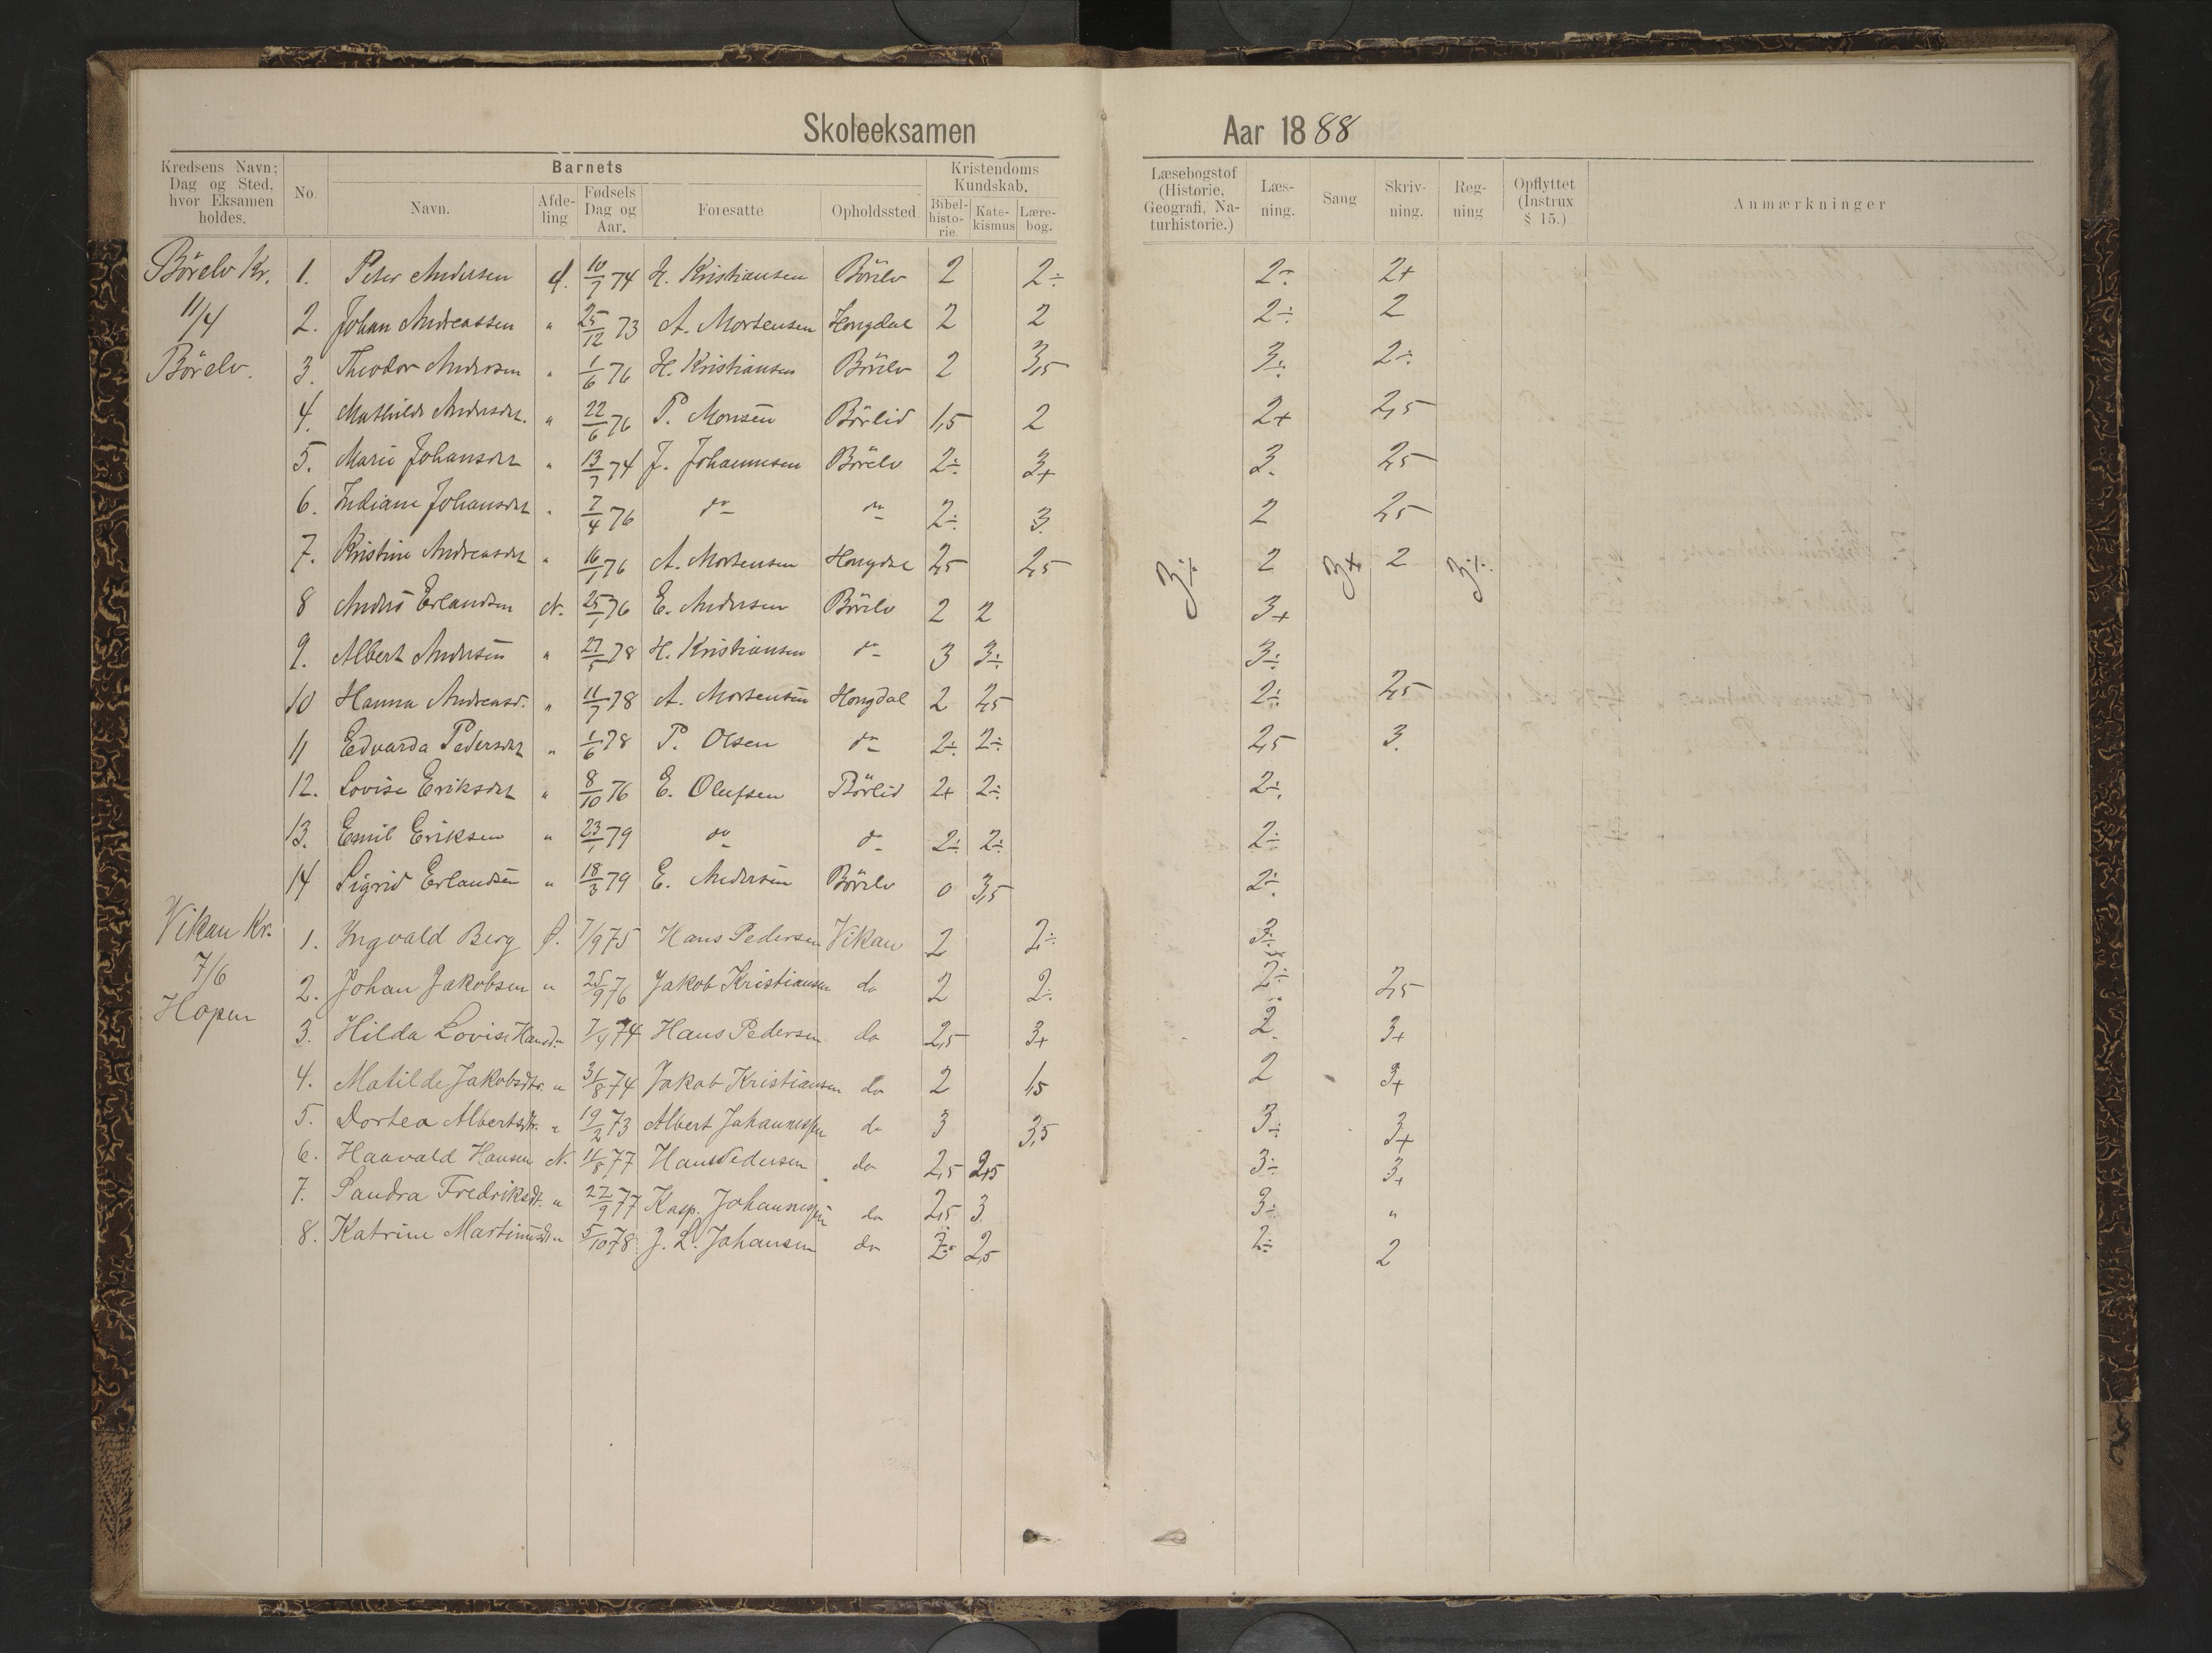 Skoleeksamen Aar 1888
Kredsens Navn; Dag og Sted, hvor Eksamen holdes. No. Barnets Kristendoms Kundskab. Læsebogstof (Historie, Geografi, Naturhistorie.) Læsning. Sang Skrivning. Regning Opflyttet (Instrux § 15.) Anmærkninger
Navn. Afdeling Fødsels Dag og Aar. Foresatte Opholdssted. Bibelhistorie. Katekismus Lærebog.
Börelv Kr. 1. Peter Andersen 10/7 74 H. Kristiansen Börelv 2 2÷ 2÷ 2+
11/4 2. Johan Andreassen " 25/12 73 A. Mortensen Hongdal 2 2 2÷ 2
Börelv. 3. Theodor Andersen " 1/6 76 H. Kristiansen Börelv 2 3,5 3÷ 2÷
4. Mathilde Andersdt. " 22/6 76 P. Monsen Börlid 1,5 2 2+ 2,5
5. Marie Johansdt " 13/7 74 J. Johannesen Börelv 2÷ 3+ 3. 2,5
6. Indiane Johansdt " 7/4 76 do do 2÷ 3. 2 2,5
7. Kristine Andreasdt " 16/1 76 A. Mortensen Hongdal 2,5 2,5 3÷ 2 3+ 2 3÷
8 Anders Erlandsen N. 25/1 76 E. Andersen Börelv 2 2 3+
9. Albert Andersen " 27/5 78 H. Kristiansen do 3 3÷ 3÷
10 Hanna Andreasd. " 11/7 78 A. Mortensen Hongdal 2 2,5 2÷ 2,5
11 Edvarda Pedersdt " 1/6 78 P. Olsen do 2÷ 2÷ 2,5 3.
12. Lovise Eriksdt " 8/10 76 E. Olufsen Börlid 2+ 2÷ 2÷
13. Emil Eriksen " 23/1 79 do do 2÷ 2÷ 2÷
14 Sigrid Erlandsen " 18/3 79 E. Andersen Börelv 0 3,5 2÷
Vikan Kr. 1. Yngvald Berg Ø. 7/9 75 Hans Pedersen Vikan 2 2÷ 3÷
7/6 2. Johan Jakobsen " 25/9 76 Jakob Kristiansen do 2 2÷ 2÷ 2,5
Hopen 3. Hilda Lovise Hansd. 7/4 74 Hans Pedersen do 2,5 3+ 2 3+
4. Matilde Jakobsdtr. " 31/8 74 Jakob Kristiansen do 2 1,5 2 3+
5. Dortea Albertsdtr. " 19/2 73 Albert Johannessen do 3 3,5 3÷ 3+
6. Haavald Hansen N. 11/8 77 Hans Pedersen do 2,5 2,5 3÷ 3+
7. Sandra Fredriksdt. " 22/9 77 Kasp. Johannessen do 2,5 3 3÷ "
8. Katrine Martinusdtr 5/10 78 J. L. Johansen do 2÷ 2,5 2÷ 2